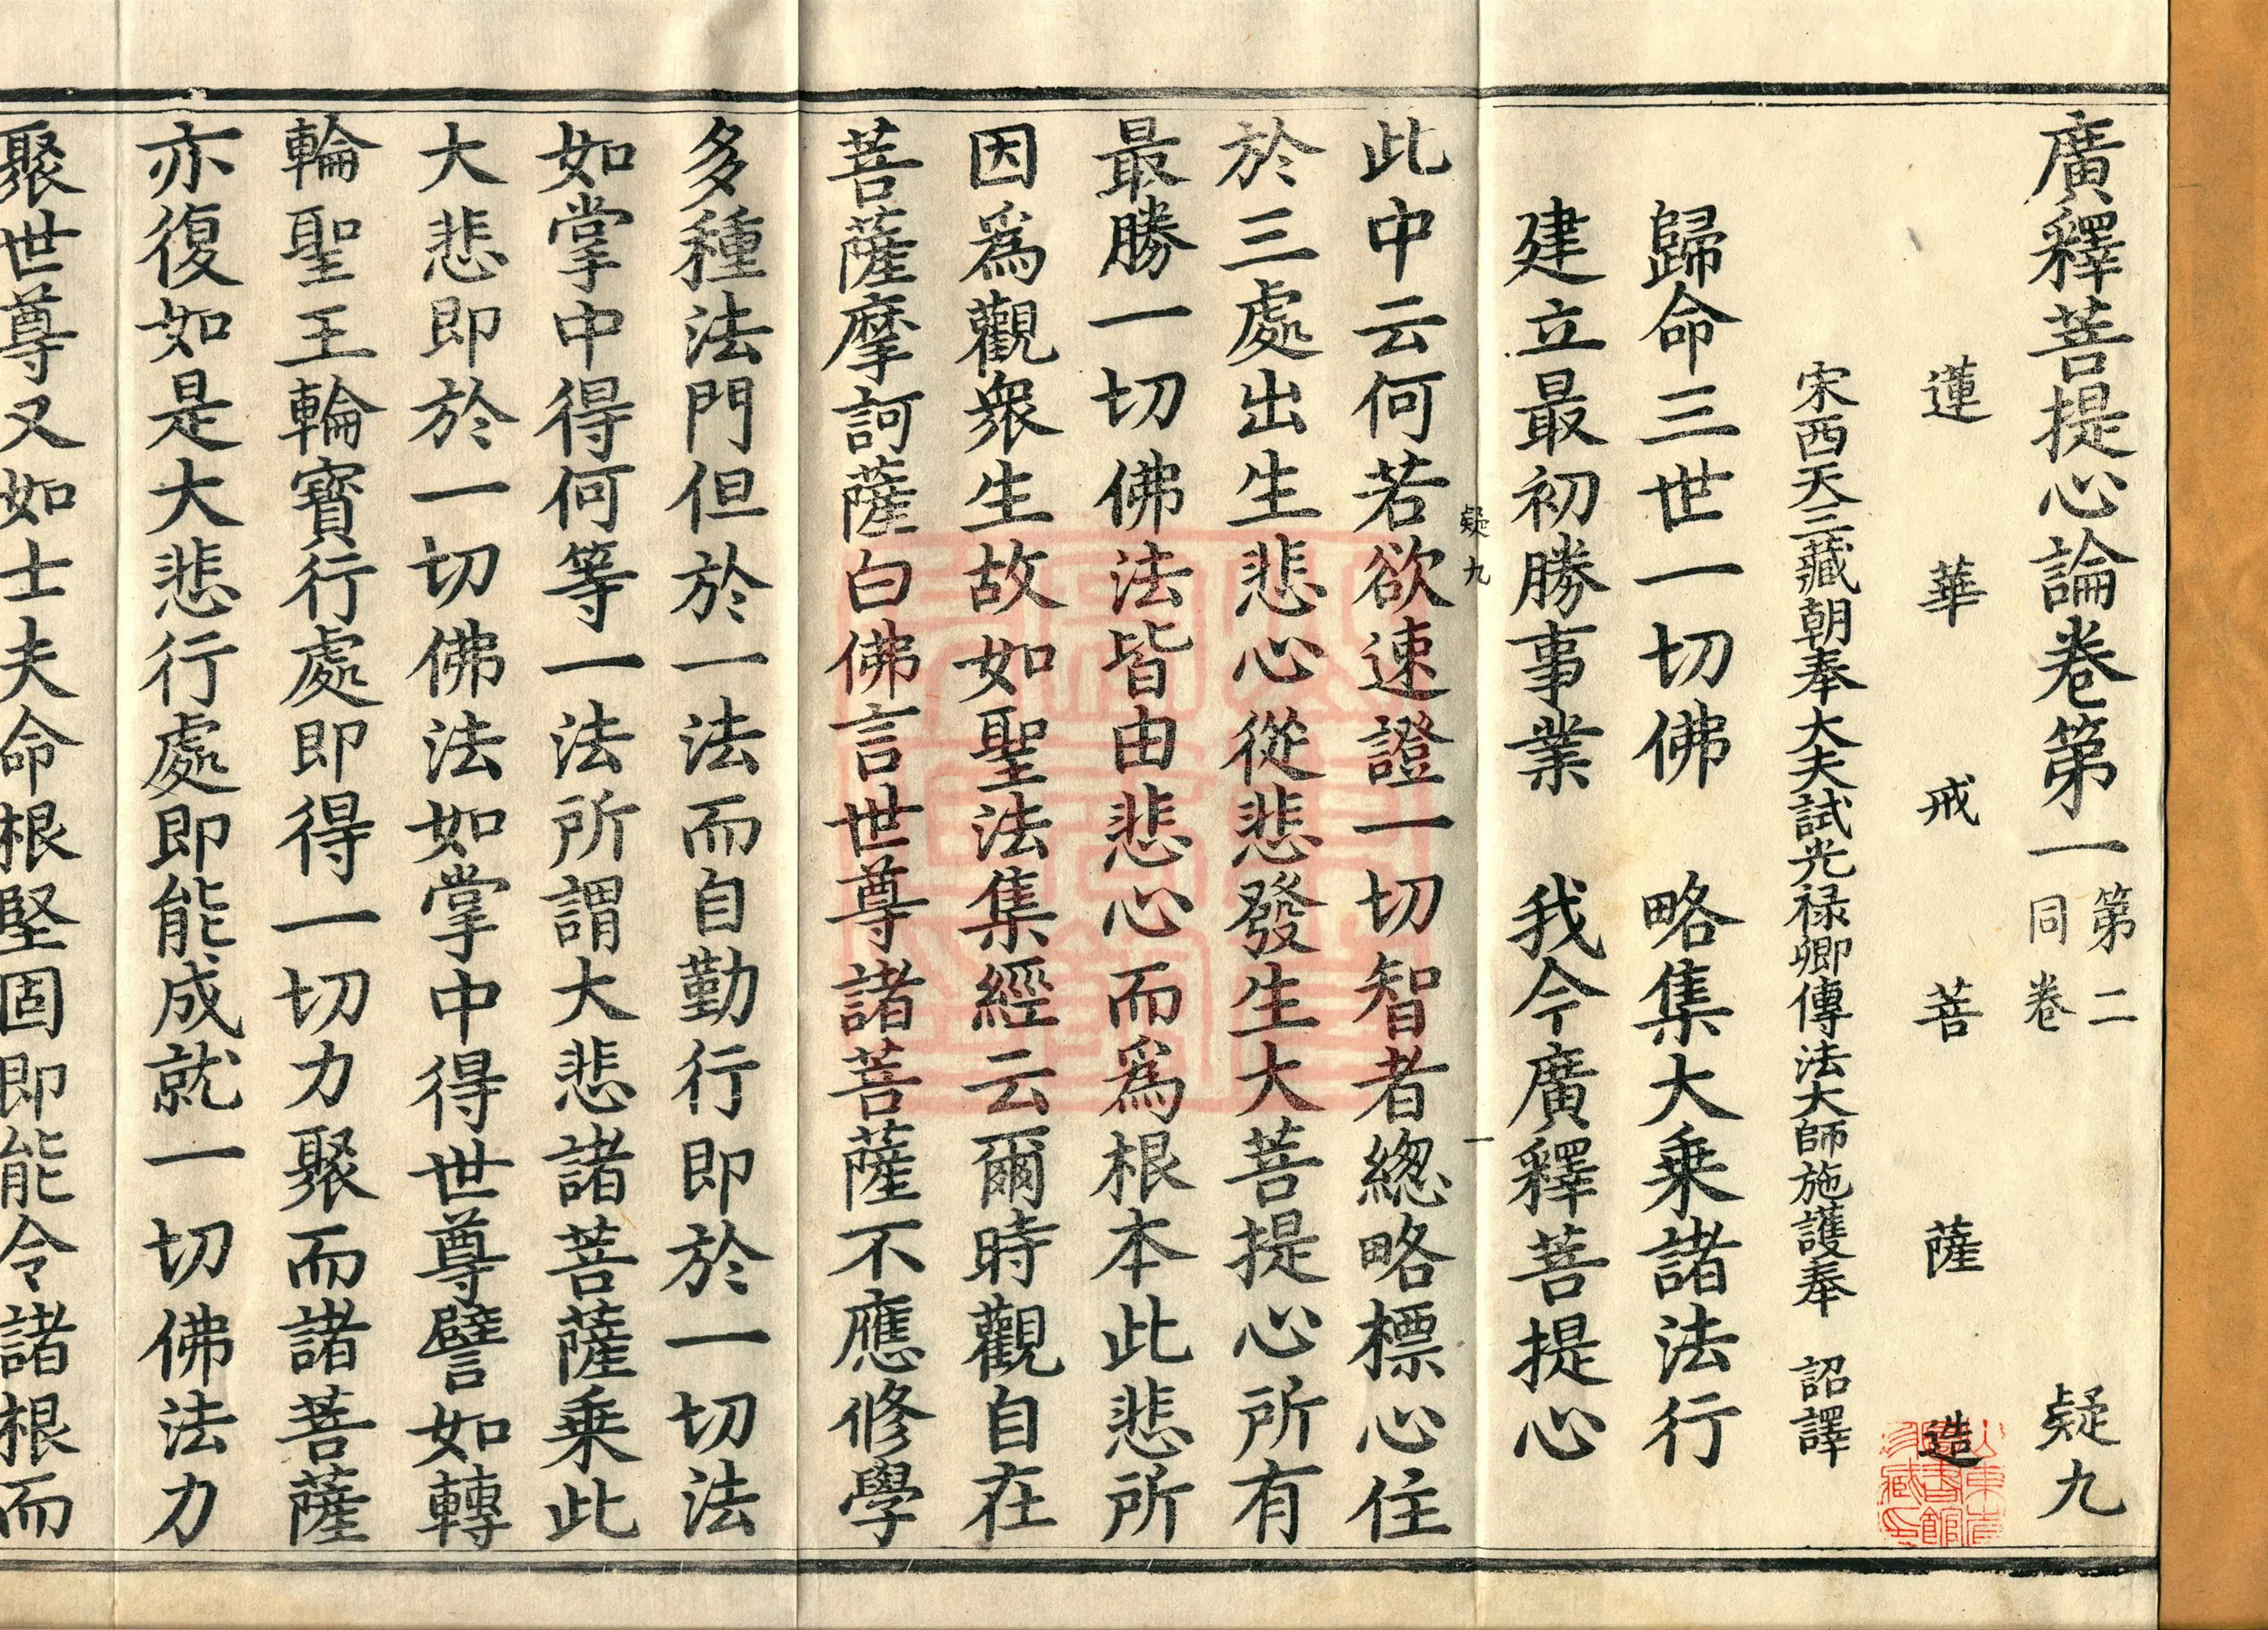 廣釋菩提心論卷第一 第二同卷 疑九
蓮華戒菩薩造
宋西天三藏朝奉大夫試光祿卿傳法大師施護奉 詔譯
歸命三世一切佛 略集大乘諸法行
建立最初勝事業 我今廣釋菩提心
疑九 一
此中云何若欲速證一切智者緫略標心住
於三處出生悲心從悲發生大菩提心所有
最勝一切佛法皆由悲心而爲根本此悲所
因爲觀衆生故如聖法集經云爾時觀自在
菩薩摩訶薩白佛言世尊諸菩薩不應修學
多種法門但於一法而自勤行即於一切法
如掌中得何等一法所謂大悲諸菩薩乘此
大悲即於一切佛法如掌中得世尊譬如轉
輪聖王輪寶行處即得一切力聚而諸菩薩
亦復如是大悲行處即能成就一切佛法力
聚世尊又如士夫命根堅固即能令諸根而